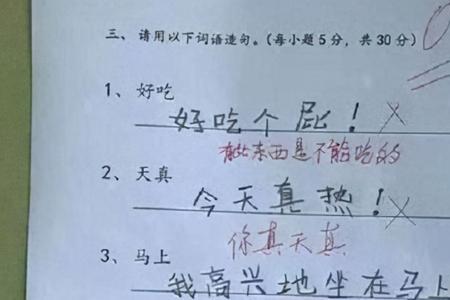 三、请用以下词语造句。(每小题5分，共30分)
1、好吃
好吃个屁！
有些东西是不能吃的
2、天真
今天真热！
你真天真
3、马上
我高兴地坐在马上